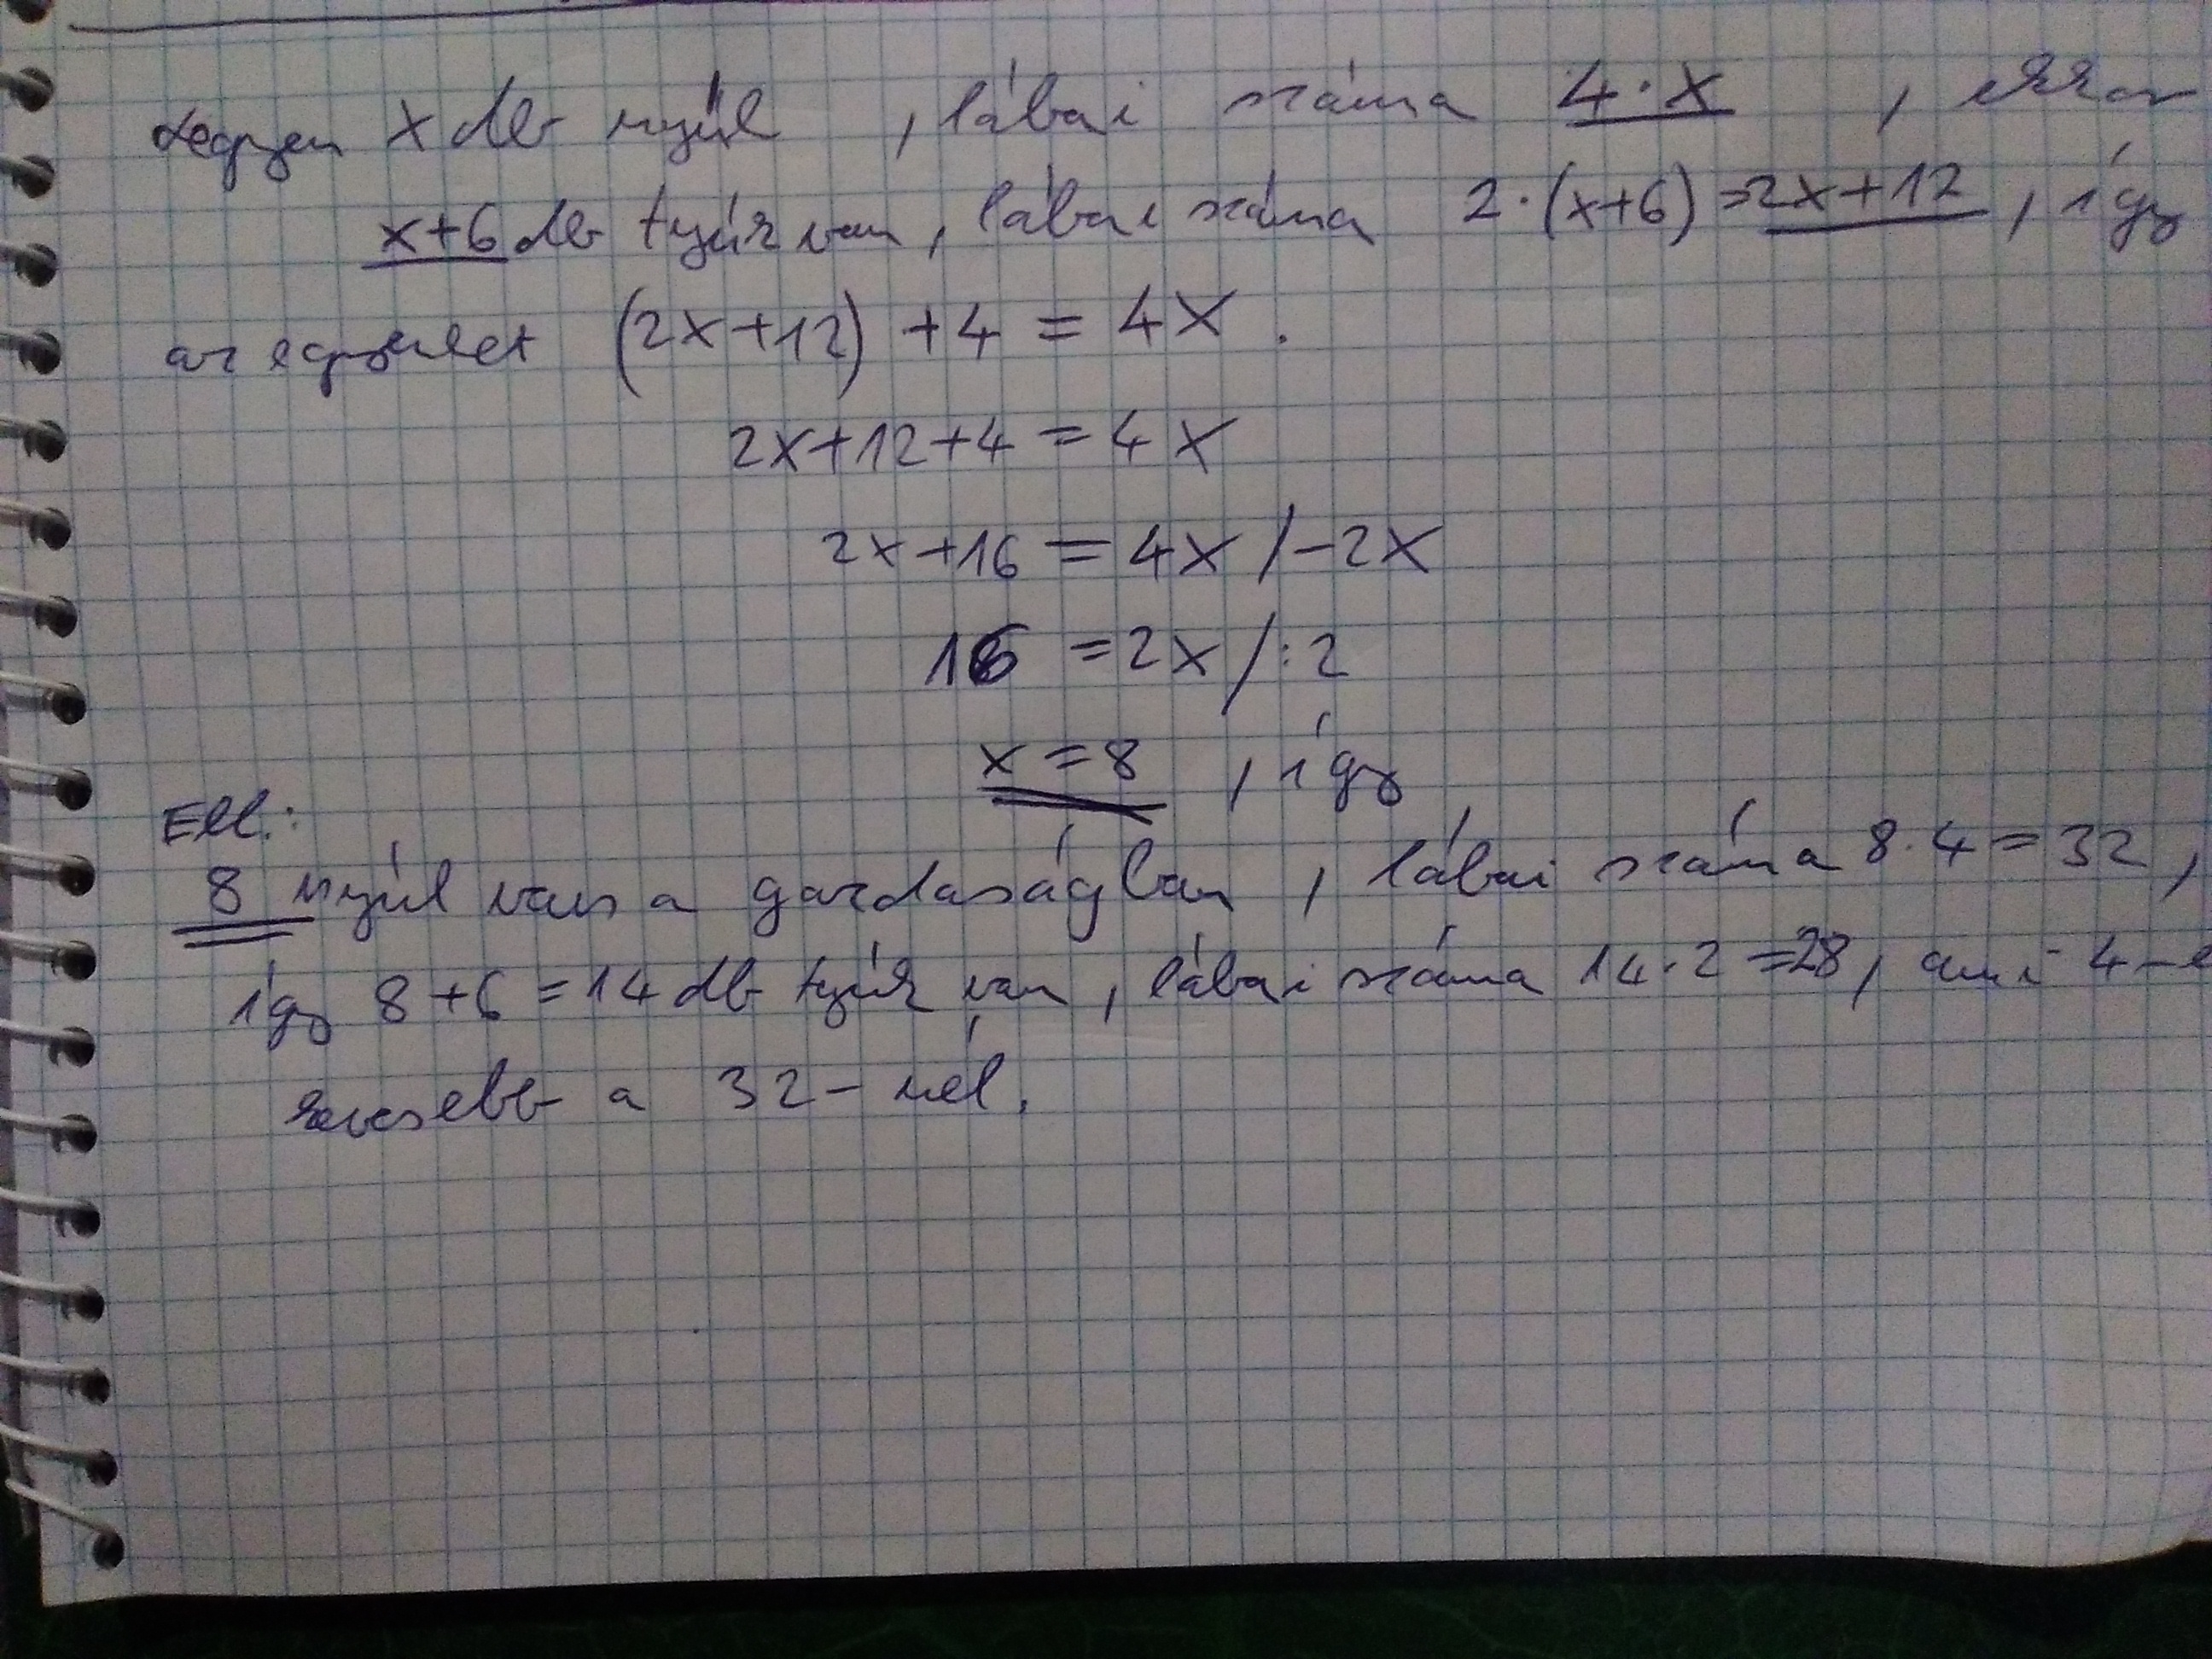 Legyen x db nyúl , lábai száma 4·x , ekkor
x+6 db tyúk van, lábai száma 2·(x+6)=2x+12, így
az egyenlet (2x+12)+4=4x.
2x+12+4=4x
2x+16=4x /-2x
16=2x/:2
x=8 , így
Ell.:
8 nyúl van a gazdaságban, lábai száma 8·4=32,
így 8+6=14 db tyúk van, lábai száma 14·2=28, ami 4-e
kevesebb a 32-nél.